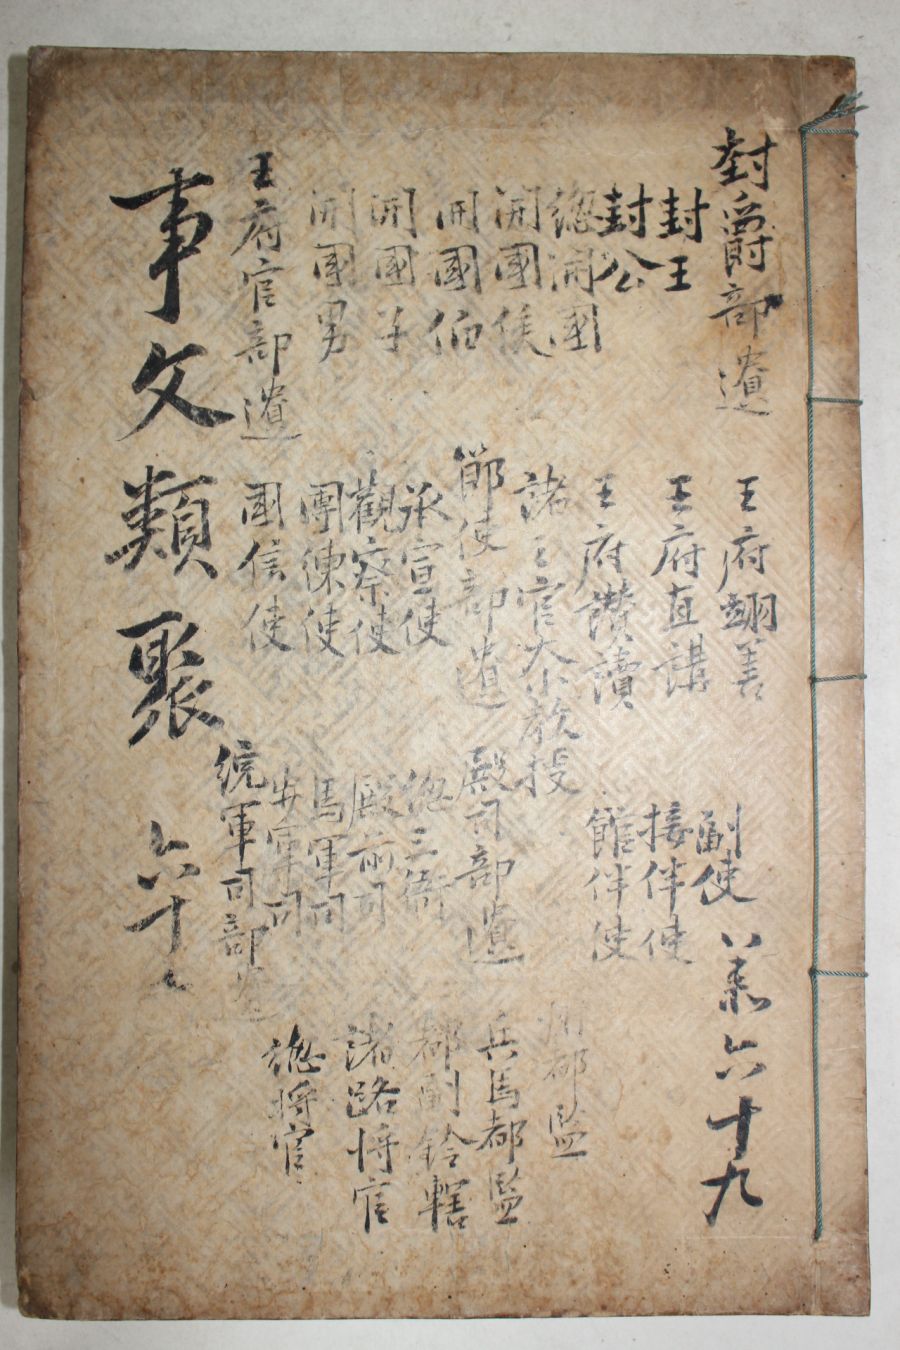 封爵部遺
封王
封公
緫開國
開國侯
開國伯
開國子
開國男
王府官部遺
王府翊善
王府直講
王府讚讀
諸王宮大小教授
節使部遺
承宣使
觀察使
團練使
國信使
副使
接伴使
館伴使
殿司部遺
緫三衙
殿前司
馬軍司
步軍司
統軍司部遺
州都監
兵馬都監
都副鈐轄
諸路將官
緫將官
共六十九
事文類聚
六十七